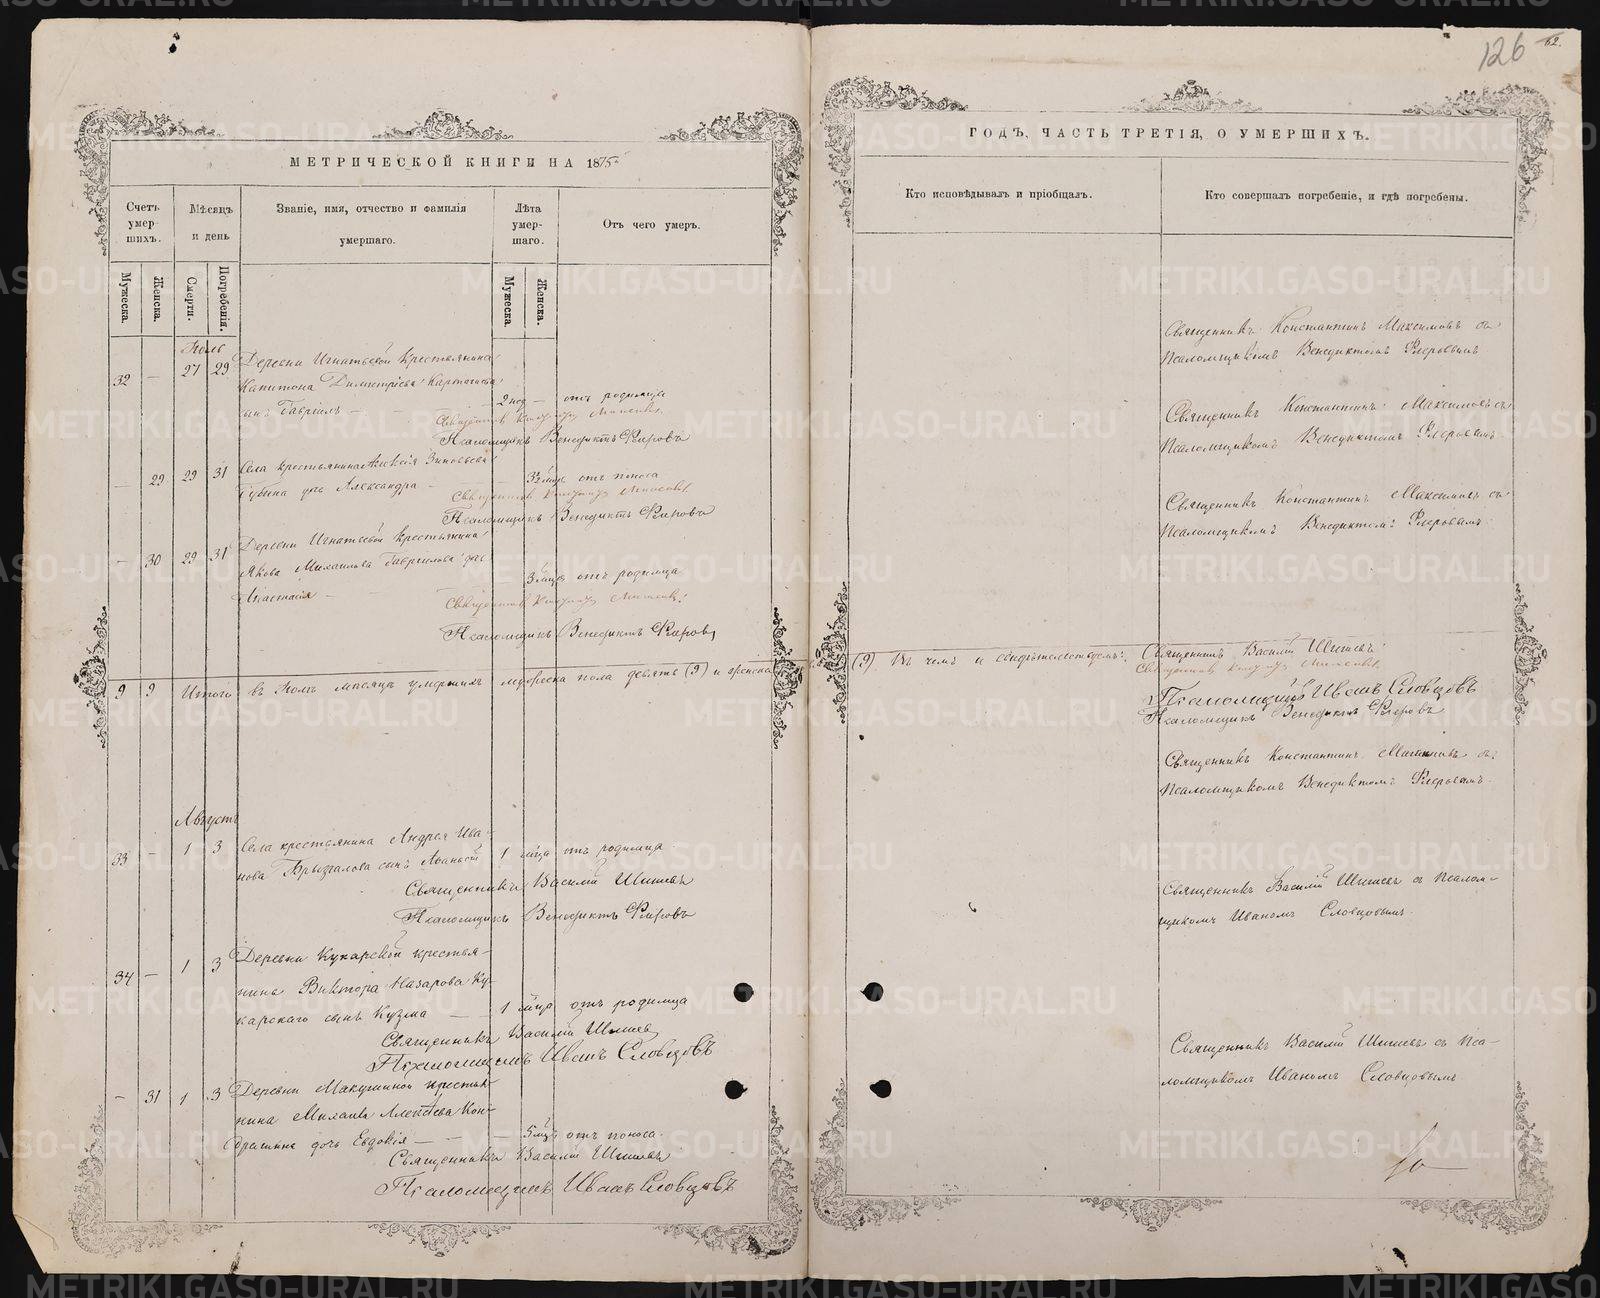 МЕТРИЧЕСКОЙ КНИГИ НА 1875
Счетъ умершихъ.
Мѣсяцъ и день
Званіе, имя, отчество и фамилія умершаго.
Лѣта умершаго.
Отъ чего умеръ.
Мужеска.
Женска.
Смерти.
Погребенія.
Мужеска.
Женска.
Іюль
32 — 27 29 Деревни Игнатьевой крестьянина
Капитона Димитріева
сынъ Гавріилъ — 2 нед — отъ родимца
Псаломщикъ Венедиктъ Флеровъ
— 29 29 31 Села крестьянина Алексія Зиновьева
Губина дочь Александра — 3½ мѣс отъ поноса
Псаломщикъ Венедиктъ Флеровъ
— 30 29 31 Деревни Игнатьевой крестьянина
Якова Михаилова Гаврилова дочь
Анастасія — 3 мѣс отъ родимца
Псаломщикъ Венедиктъ Флеровъ
9 9 Итого въ Іюлѣ мѣсяцѣ умершихъ мужеска пола девять (9) и женска
Августъ
33 — 1 3 Села крестьянина Андрея Ива-
нова Брызгалова сынъ 1 мѣсца отъ родимца
Священникъ Василій Шишевъ
Псаломщикъ Венедиктъ Флеровъ
34 — 1 3 Деревни Кукарской крестья-
нина Виктора Назарова Ку-
карскаго сынъ Кузма — 1 мѣсца отъ родимца
Священникъ Василій Шишевъ
Псаломщикъ Иванъ Словцовъ
— 31 1 3 Деревни Макушиной крестья-
нина Михаила Алексѣева Кон-
драшина дочь Евдокія — 5 мѣс отъ поноса.
Священникъ Василій Шишевъ
Псаломщикъ Иванъ Словцовъ
126
62.
ГОДЪ, ЧАСТЬ ТРЕТІЯ, О УМЕРШИХЪ.
Кто исповѣдывалъ и пріобщалъ.
Кто совершалъ погребеніе, и гдѣ погребены.
Священникъ Константинъ Максимовъ съ
Псаломщикомъ Венедиктомъ Флеровымъ
Священникъ Константинъ Максимовъ съ
Псаломщикомъ Венедиктомъ Флеровымъ
Священникъ Константинъ Максимовъ съ
Псаломщикомъ Венедиктомъ Флеровымъ
(9). Въ чемъ и свидѣтельствуемъ: Священникъ Василій Шишевъ
Псаломщикъ Иванъ Словцовъ
Псаломщикъ Венедиктъ Флеровъ
Священникъ Константинъ съ
Псаломщикомъ Венедиктомъ Флеровымъ
Священникъ Василій Шишевъ съ Псалом-
щикомъ Иваномъ Словцовымъ
Священникъ Василій Шишевъ съ Пса-
ломщикомъ Иваномъ Словцовымъ
METRIKI.GASO-URAL.RU